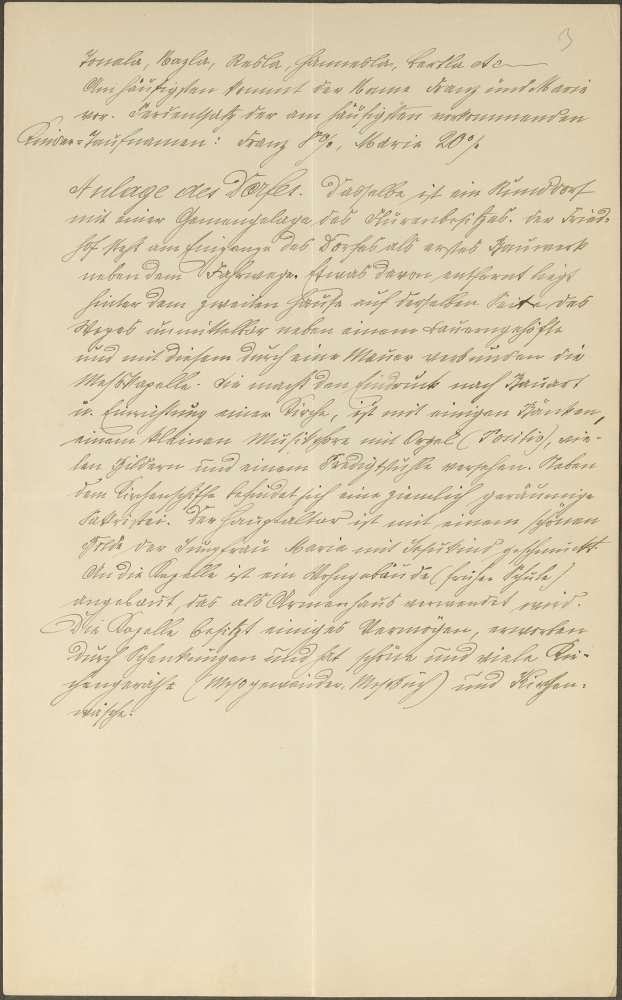 3
Tonala, Nazla, Resla, Hannesla, Bartla etc
Am häufigsten kommt der Name Franz und Marie
vor. Perzentsatz der am häufigsten vorkommenden
Kinder-Taufnamen: Franz 8%, Marie 20%
Anlage des Dorfes. Dasselbe ist ein Runddorf
mit einer Gemengelage des Flurenbesitzes. Der Fried-
hof steht am Eingange des Dorfes als erstes Bauwerk
neben dem Fahrwege. Etwas davon entfernt liegt
hinter dem zweiten Hause auf derselben Seite des
Weges unmittelbar neben einem Bauerngehöfte
und mit diesem durch eine Mauer verbunden die
Meßkapelle. Sie macht den Eindruck nach Bauart
u. Einrichtung einer Kirche, ist mit einigen Bänken,
einem kleinen Musikchore mit Orgel (Positiv), vie-
len Bildern und einem Predigtstuhle versehen. Neben
dem Kirchenschiffe befindet sich eine ziemlich geräumige
Sakristei. Der Hauptaltar ist mit einem schönen
Bilde der Jungfrau Maria mit Jesukind geschmückt.
An die Kapelle ist ein Wohngebäude (früher Schule)
angebaut, das als Armenhaus verwendet wird.
Die Kapelle besitzt einiges Vermögen, erworben
durch Schenkungen und hat schöne und viele Kir-
chengeräthe (Messgewänder, Meßbuch) und Kirchen-
wäsche.